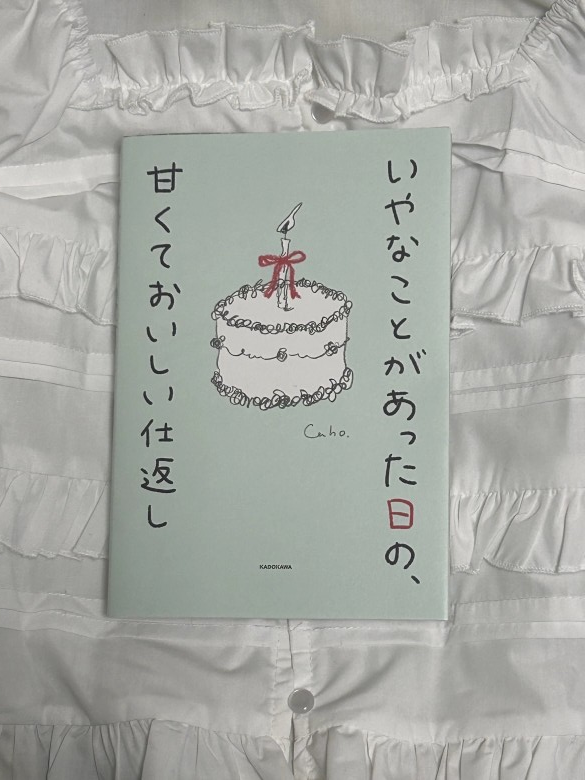 いやなことがあった日の、
甘くておいしい仕返し
Caho.
KADOKAWA